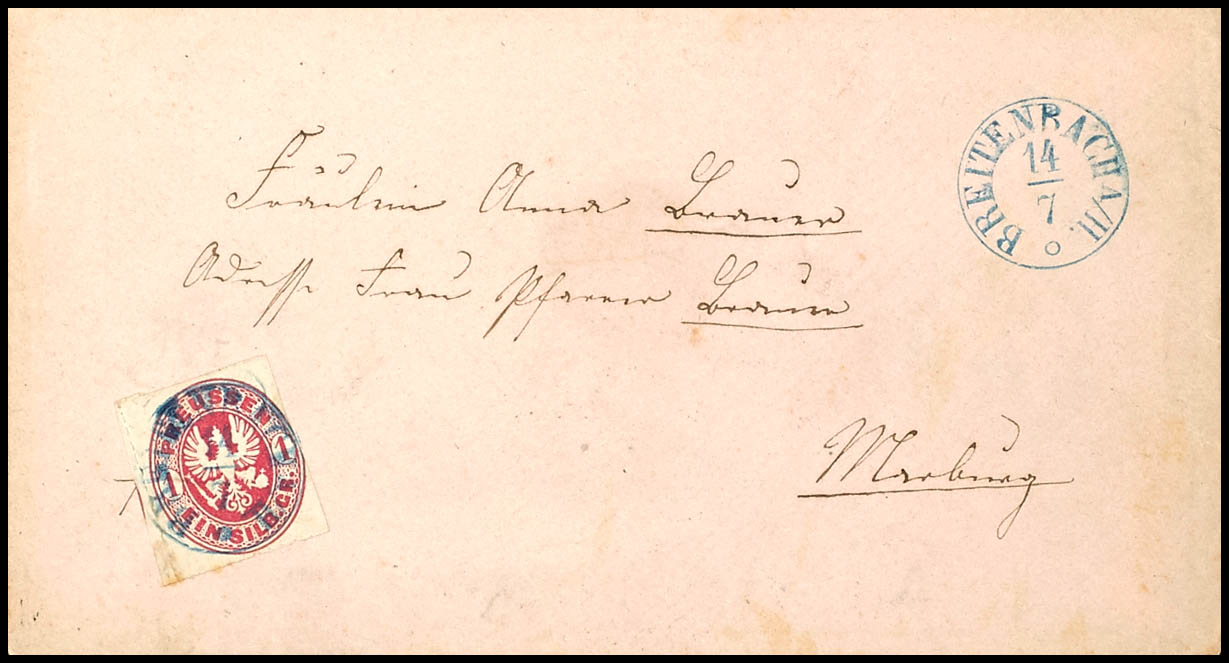 BREITENBACH A/H.
14
7
Fräulein Anna Brauer
Adresse Frau Pfarrer Brauer
Marburg
PREUSSEN
1 1
EIN SILB. GR.